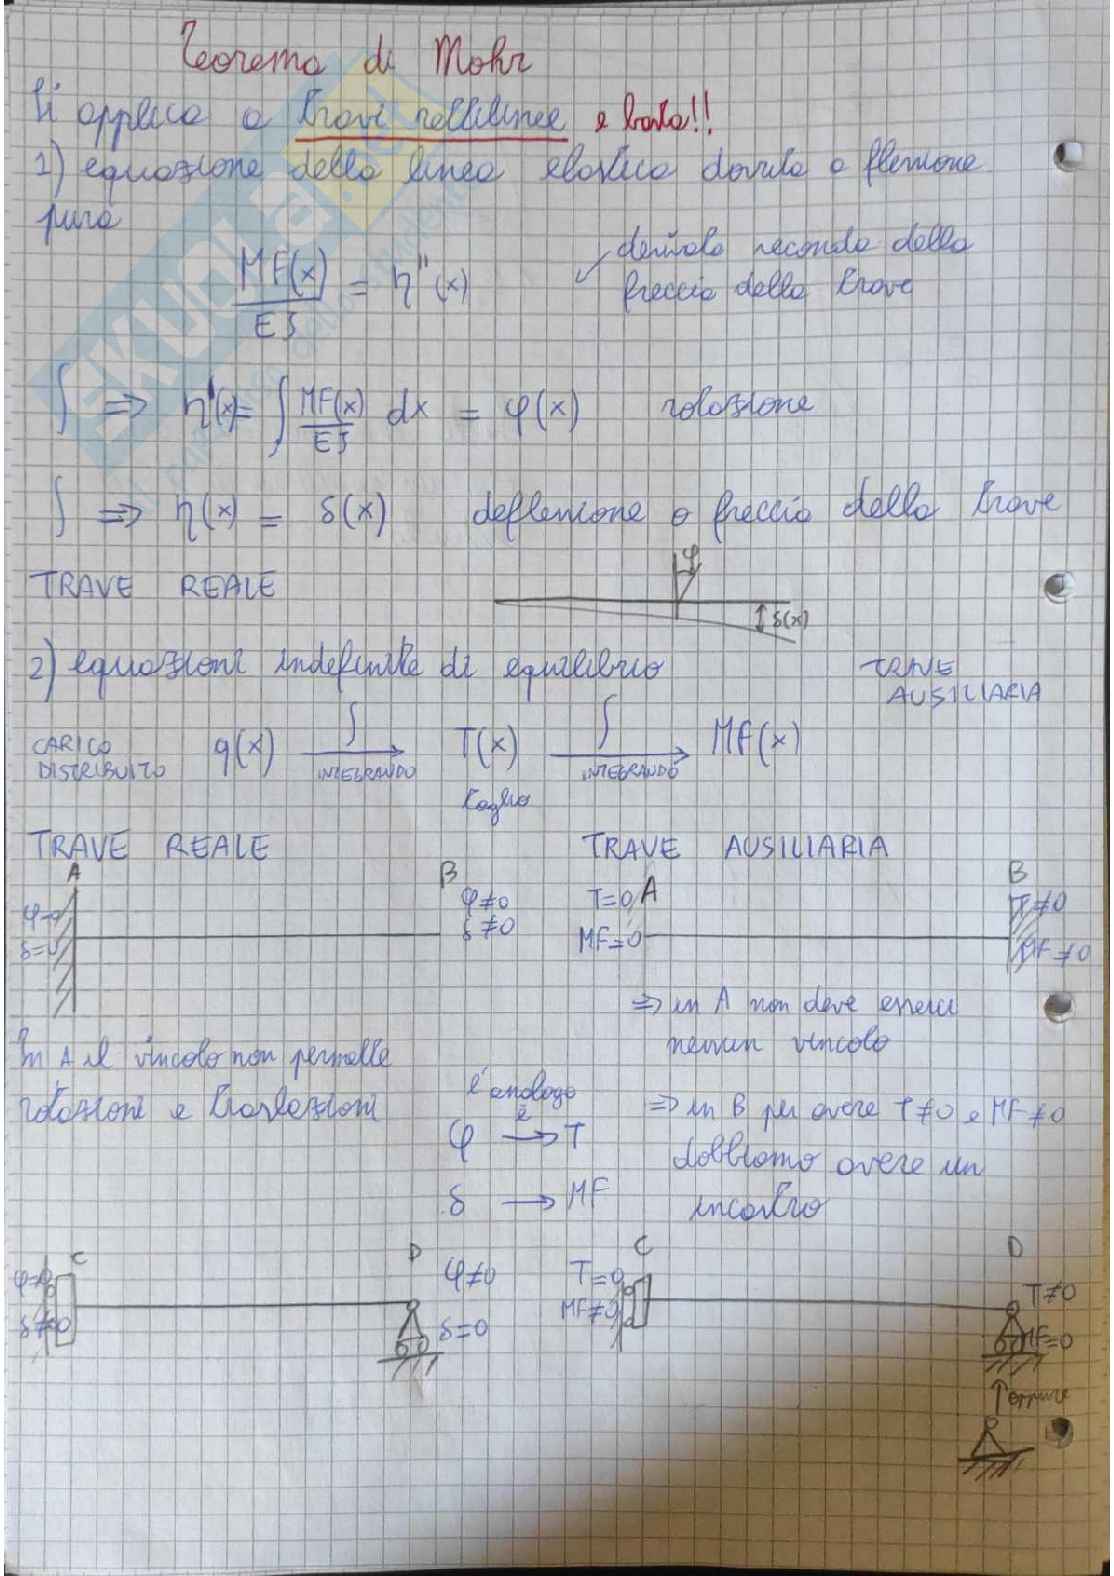 Teorema di Mohr
Si applica a travi rettilinee e basta!!
1) equazione della linea elastica dovuta a flessione
pura
MF(x)/EJ = η''(x)
derivata seconda della
freccia della trave
∫ ⇒ η'(x)= ∫ MF(x)/EJ dx = φ(x) rotazione
∫ ⇒ η(x) = δ(x) deflessione o freccia della trave
φ
TRAVE REALE
δ(x)
2) equazioni indefinite di equilibrio
TRAVE
AUSILIARIA
CARICO
DISTRIBUITO
q(x) ∫ → INTEGRANDO T(x) ∫ → INTEGRANDO MF(x)
taglio
TRAVE REALE
A
B
φ=0
δ=0
φ≠0
δ≠0
TRAVE AUSILIARIA
A
B
T=0
MF=0
T≠0
MF≠0
In A il vincolo non permette
rotazioni e traslazioni
l'analogo
è
φ → T
δ → MF
⇒ in A non deve esserci
nessun vincolo
⇒ in B per avere T≠0 e MF≠0
dobbiamo avere un
incastro
C
D
φ=0
δ≠0
φ≠0
δ=0
C
D
T=0
MF≠0
T≠0
MF=0
↑ oppure
SKUOLA.net